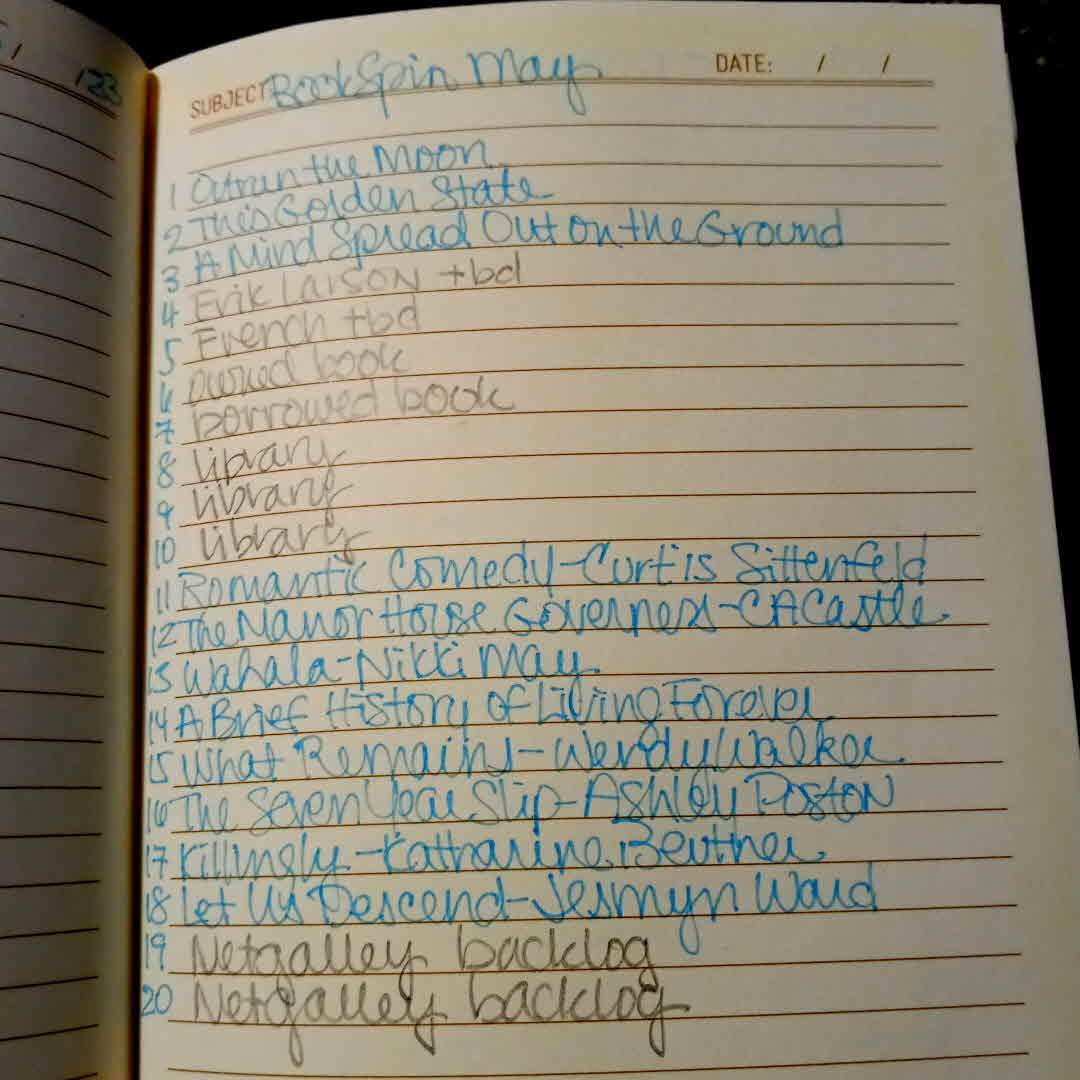 / 23
SUBJECT BookSpin May
DATE: / /
1 Outrun the Moon
2 This Golden State
3 A Mind Spread Out on the Ground
4 Erik Larson tbd
5 French tbd
6 owned book
7 borrowed book
8 library
9 library
10 library
11 Romantic Comedy-Curtis Sittenfeld
12 The Manor House Governess-CA Castle
13 Wahala-Nikki May
14 A Brief History of Living Forever
15 What Remains-Wendy Walker
16 The Seven Year Slip-Ashley Poston
17 Killingly-Katharine Beutner
18 Let Us Descend-Jesmyn Ward
19 Netgalley backlog
20 Netgalley backlog